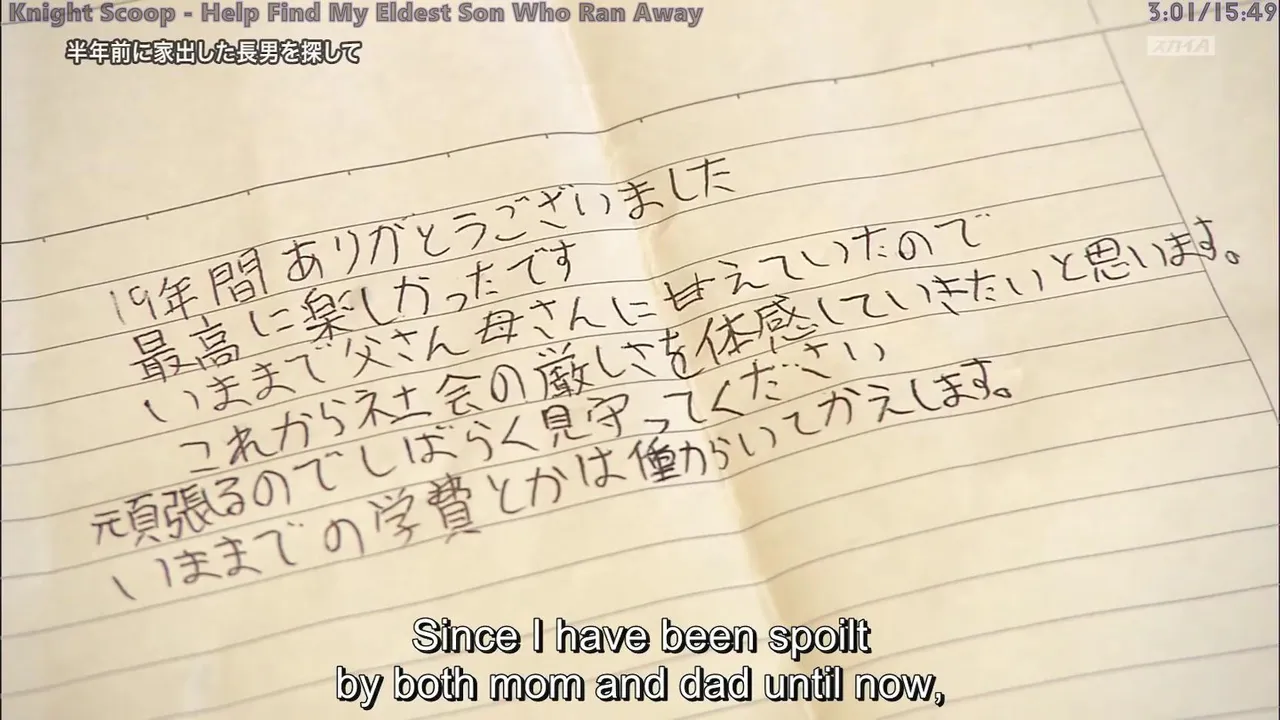 Knight Scoop - Help Find My Eldest Son Who Ran Away
3:01/15:49
半年前に家出した長男を探して
スカイA
19年間ありがとうございました
最高に楽しかったです
いままで父さん母さんに甘えていたので
これから社会の厳しさを体感していきたいと思います。
頑張るのでしばらく見守ってください
いままでの学費とかは働からいてかえします。
Since I have been spoilt
by both mom and dad until now,